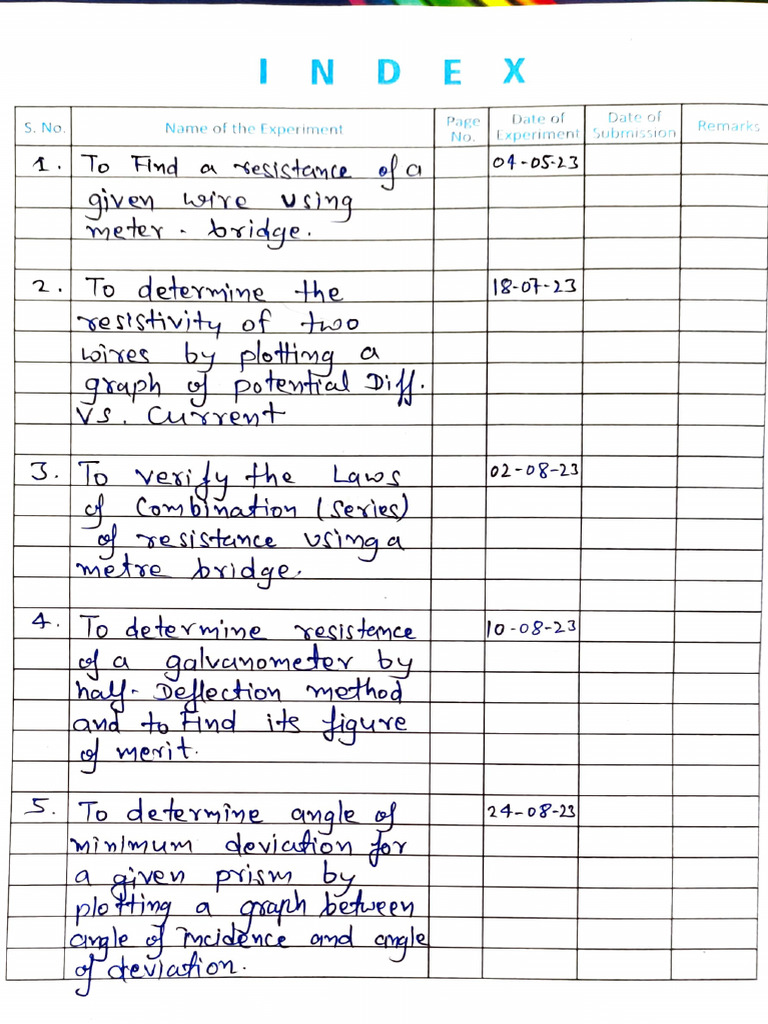 I N D E X
S. No. Name of the Experiment Page No. Date of Experiment Date of Submission Remarks
1. To Find a resistance of a 04-05-23
given wire using
meter - bridge.
2. To determine the 18-07-23
resistivity of two
wires by plotting a
graph of potential Diff.
Vs. Current
3. To verify the Laws 02-08-23
of Combination (Series)
of resistance using a
metre bridge.
4. To determine resistance 10-08-23
of a galvanometer by
half- Deflection method
and to Find its figure
of merit.
5. To determine angle of 24-08-23
minimum deviation for
a given prism by
plotting a graph between
angle of incidence and angle
of deviation.